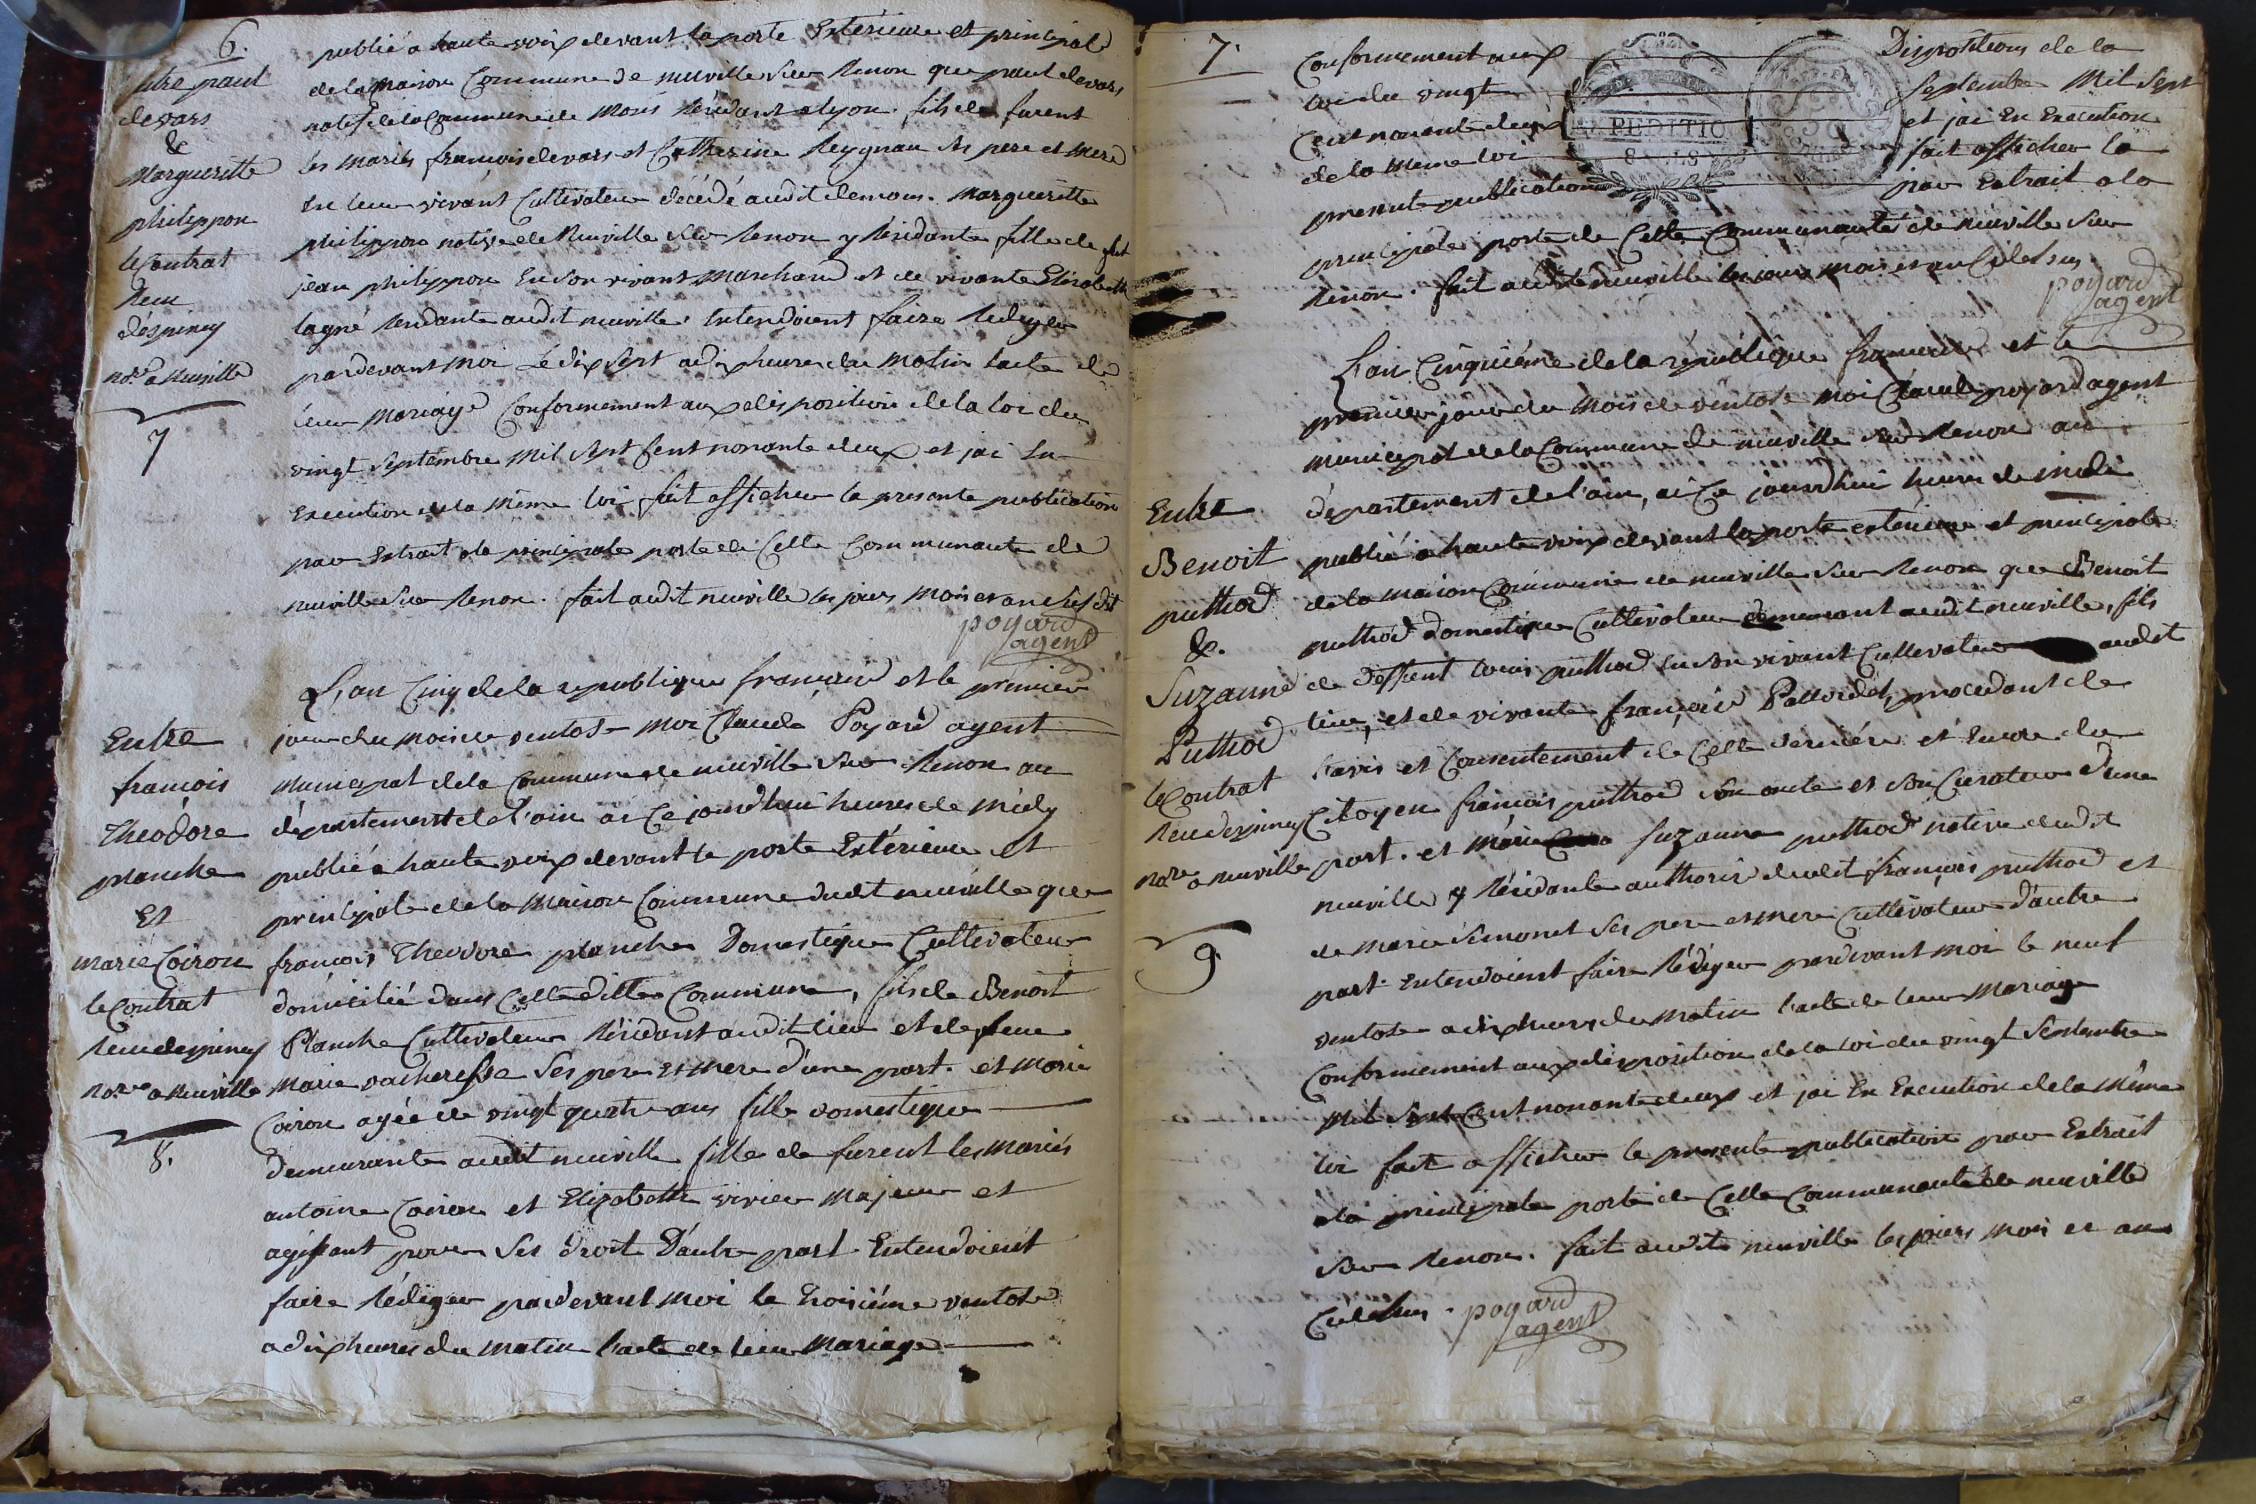 6.
Entre paul
devars
&
Margueritte
philippon
le Contrat
Recu
déspiney
no.re a neuville
7
publié a haute voix devant la porte Extérieure et principale
de la Maison Commune de neuville sur Renon que paul devars
natif de la Commune de Résidant a lyon fils de furent
les mariés francois devars et Catherine Reygnau ses pere et mere
En leur vivant Cultivateur décédé audit Marguerite
philippon native de Neuville sur Renon y Résidante fille de
jean philippon En son vivant Marchand et de vivante Elisabeth
lagné Residante audit neuville. Entendoient faire Rediger
pardevant moi Le dix sept a dix heures du Matin lacte de
leur Mariage Conformement aux disposition de la loi du
vingt Septembre Mil Sept Cent nonante deux et jai En
Execution de la Même loi fait afficher la presente publication
par Extrait a la principale porte de Cette Communauté de
neuville sur Renon. fait audit neuville les jours Mois et an susdit
poyard
agent
Entre
francois
Theodore
planche
Et
marie Coiron
le Contrat
Recu despiney
no.re a neuville
8.
L'an Cinq de la republique francaise et le premier
jour du Mois de ventose Moi Claude Poyard agent
Municipal de la Commune de neuville sur Renon au
département de l'ain ai Ce jourdhui heures de Midy
publié a haute voix devant la porte Extérieure et
principale de la Maison Commune dudit neuville que
francois Theodore planche Domestique Cultivateur
domicilié dans Cette ditte Commune, fils de Benoit
Planche Cultivateur Résidant audit lieu et de feue
Marie vacheresse Ses pere et Mere d'une part. et Marie
Coiron agée de vingt quatre ans fille domestique
demeurante audit neuville fille de furent les Mariés
antoine Coiron et Elizabeth vivier Majeur et
agissant pour Ses droit D'autre part. Entendoient
faire Rédiger pardevant Moi le troisiéme ventose
a dix heures du Matin l'acte de leur Mariage
7.
Conformement aux Dispositions de la
loi du vingt Septembre Mil Sept
Cent nonante deux et jai En Execution
de la Meme loi fait afficher la
presente publication par Extrait a la
EXPEDITIO
principale porte de Cette Communauté de neuville sur
Renon. fait audit neuville les jours Mois et an Cidessus
poyard
agent
Entre
Benoit
puthod
&.
Suzanne
Puthod
le Contrat
Recu despiney
no.re a neuville
9.
L'an Cinquiéme de la république francaise et le
premier jour du Mois de ventose Moi Claude poyard agent
municipal de la Commune de neuville sur Renon au
département de l'ain, ai Ce jourdhui heures de midi
publié a haute voix devant la porte exterieure et principale
de la maison Commune de neuville sur Renon que Benoit
puthod domestique Cultivateur demeurant audit neuville, fils
de deffunt louis puthod En son vivant Cultivateur audit
lieu, et de vivante françoise procedant de
l'avis et Consentement de Cette derniére et Encore du
Citoyen francois puthod son oncle et son Curateur d'une
part. et Marie Suzanne puthod native dudit
neuville y Résidante authorisé dudit francois puthod et
de Marie Simonet Ses pere et Mere Cultivateur d'autre
part. Entendoient faire Rédiger pardevant moi le neuf
ventose a dix heures du Matin l'acte de leur Mariage
Conformement aux disposition de la loi du vingt Septembre
Mil Sept Cent nonante deux et jai En Execution de la Même
loi fait afficher la presente publication par Extrait
a la principale porte de Cette Communauté de neuville
sur Renon. fait audit neuville les jours Mois et an
Cidessus. poyard
agent